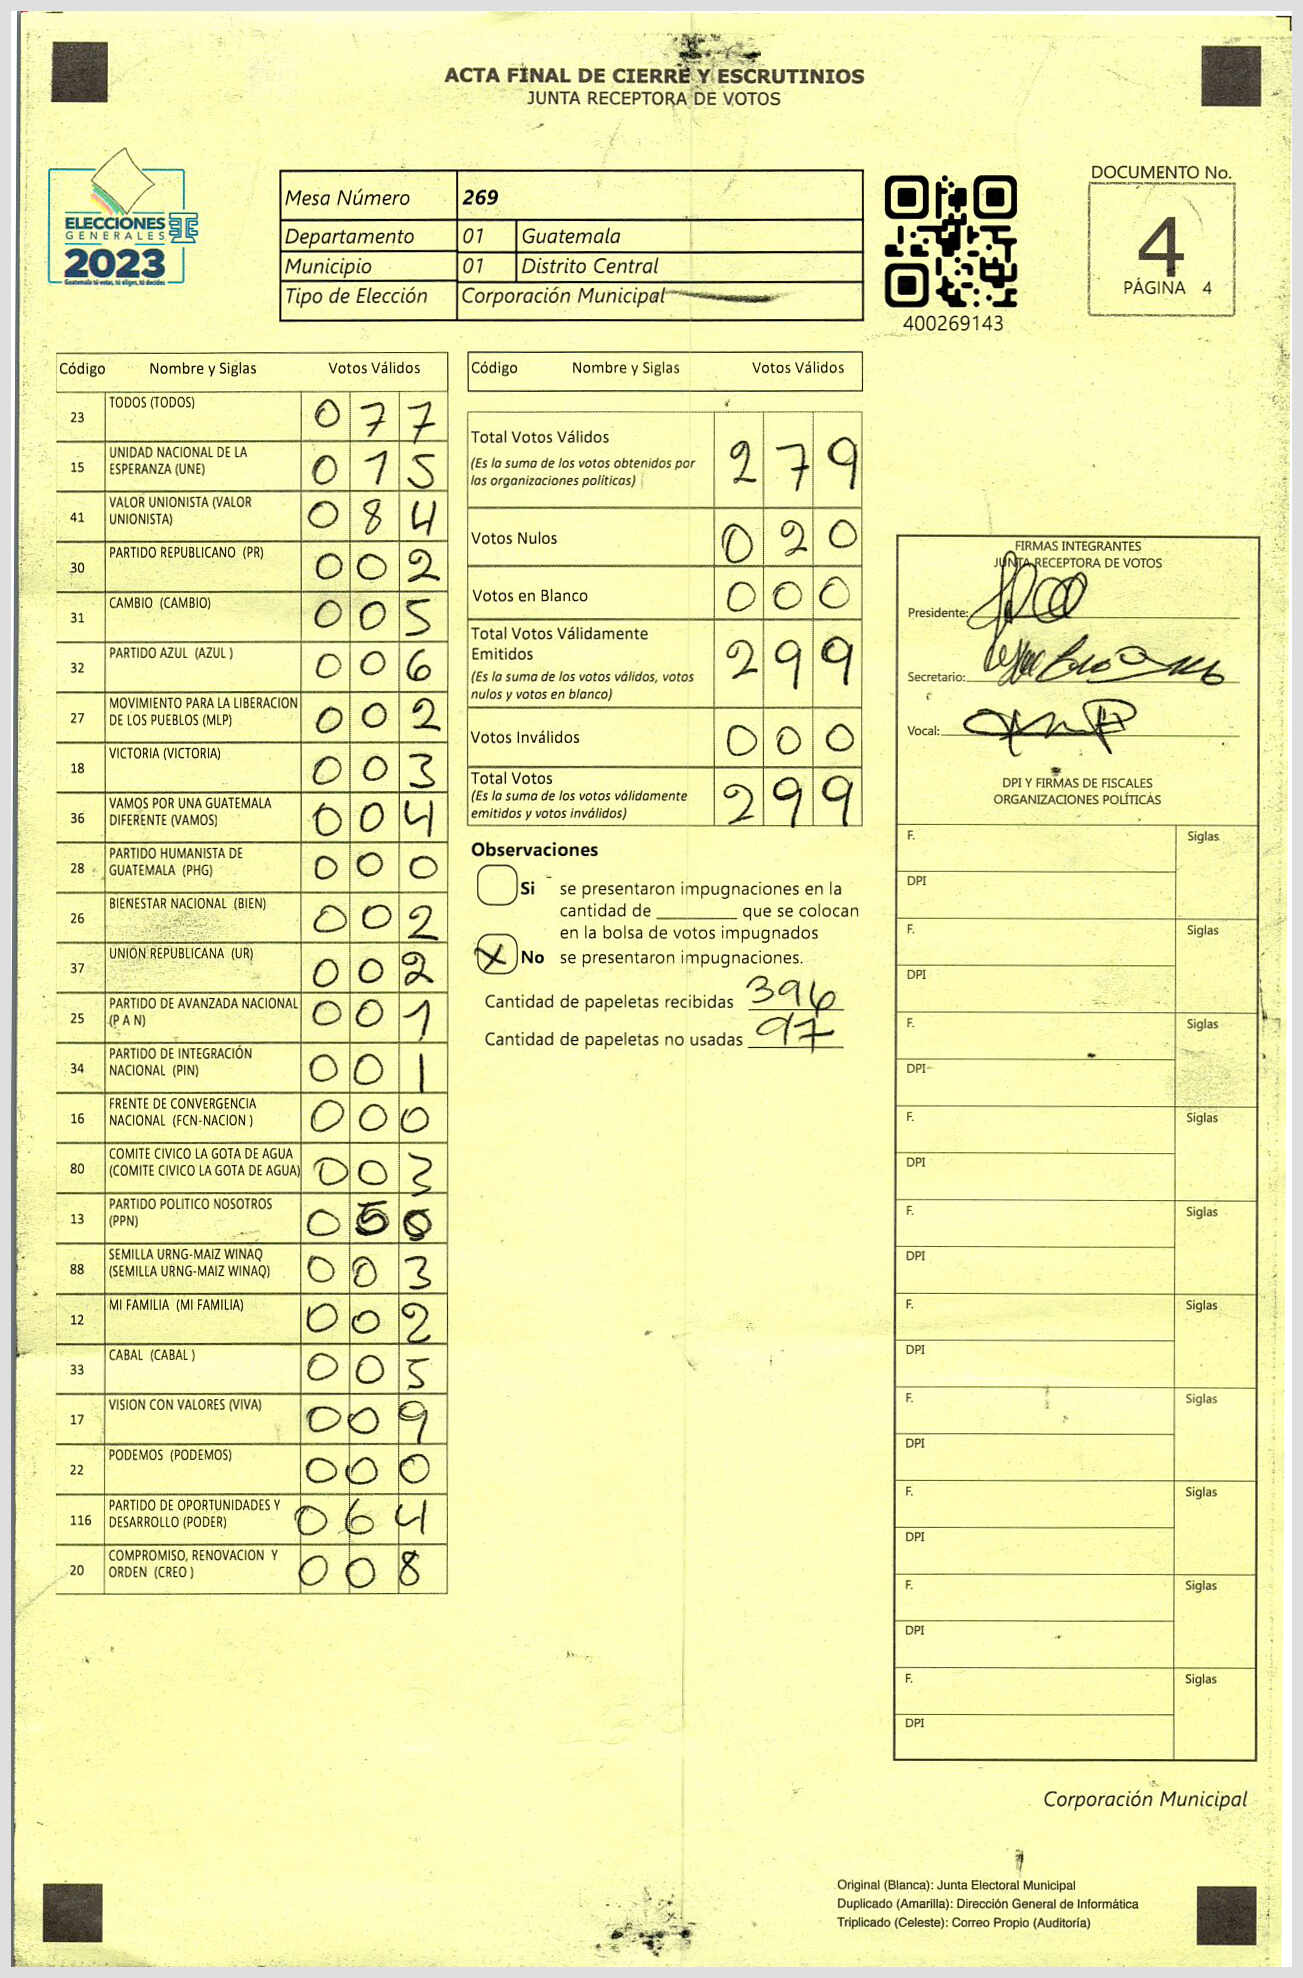 ACTA FINAL DE CIERRE Y ESCRUTINIOS
JUNTA RECEPTORA DE VOTOS
ELECCIONES
GENERALES
2023
Guatemala tú votas, tú eliges, tú decides
Mesa Número 269
Departamento 01 Guatemala
Municipio 01 Distrito Central
Tipo de Elección Corporación Municipal
400269143
DOCUMENTO No.
4
PÁGINA 4
Código Nombre y Siglas Votos Válidos
23 TODOS (TODOS) 0 7 7
15 UNIDAD NACIONAL DE LA
ESPERANZA (UNE) 0 1 5
41 VALOR UNIONISTA (VALOR
UNIONISTA) 0 8 4
30 PARTIDO REPUBLICANO (PR) 0 0 2
31 CAMBIO (CAMBIO) 0 0 5
32 PARTIDO AZUL (AZUL ) 0 0 6
27 MOVIMIENTO PARA LA LIBERACION
DE LOS PUEBLOS (MLP) 0 0 2
18 VICTORIA (VICTORIA) 0 0 3
36 VAMOS POR UNA GUATEMALA
DIFERENTE (VAMOS) 0 0 4
28 PARTIDO HUMANISTA DE
GUATEMALA (PHG) 0 0 0
26 BIENESTAR NACIONAL (BIEN) 0 0 2
37 UNION REPUBLICANA (UR) 0 0 2
25 PARTIDO DE AVANZADA NACIONAL
(P A N) 0 0 1
34 PARTIDO DE INTEGRACIÓN
NACIONAL (PIN) 0 0 1
16 FRENTE DE CONVERGENCIA
NACIONAL (FCN-NACION ) 0 0 0
80 COMITE CIVICO LA GOTA DE AGUA
(COMITE CIVICO LA GOTA DE AGUA) 0 0 3
13 PARTIDO POLITICO NOSOTROS
(PPN) 0
88 SEMILLA URNG-MAIZ WINAQ
(SEMILLA URNG-MAIZ WINAQ) 0 0 3
12 MI FAMILIA (MI FAMILIA) 0 0 2
33 CABAL (CABAL ) 0 0 5
17 VISION CON VALORES (VIVA) 0 0 9
22 PODEMOS (PODEMOS) 0 0 0
116 PARTIDO DE OPORTUNIDADES Y
DESARROLLO (PODER) 0 6 4
20 COMPROMISO, RENOVACION Y
ORDEN (CREO ) 0 0 8
Código Nombre y Siglas Votos Válidos
Total Votos Válidos 2 7 9
(Es la suma de los votos obtenidos por
las organizaciones políticas)
Votos Nulos 0 2 0
Votos en Blanco 0 0 0
Total Votos Válidamente
Emitidos 2 9 9
(Es la suma de los votos válidos, votos
nulos y votos en blanco)
Votos Inválidos 0 0 0
Total Votos 2 9 9
(Es la suma de los votos válidamente
emitidos y votos inválidos)
Observaciones
Si se presentaron impugnaciones en la
cantidad de ________ que se colocan
en la bolsa de votos impugnados
X No se presentaron impugnaciones.
Cantidad de papeletas recibidas 396
Cantidad de papeletas no usadas 97
FIRMAS INTEGRANTES
JUNTA RECEPTORA DE VOTOS
Presidente:
Secretario:
Vocal:
DPI Y FIRMAS DE FISCALES
ORGANIZACIONES POLÍTICAS
F. Siglas
DPI
F. Siglas
DPI
F. Siglas
DPI
F. Siglas
DPI
F. Siglas
DPI
F. Siglas
DPI
F. Siglas
DPI
F. Siglas
DPI
F. Siglas
DPI
F. Siglas
DPI
Corporación Municipal
Original (Blanca): Junta Electoral Municipal
Duplicado (Amarilla): Dirección General de Informática
Triplicado (Celeste): Correo Propio (Auditoría)